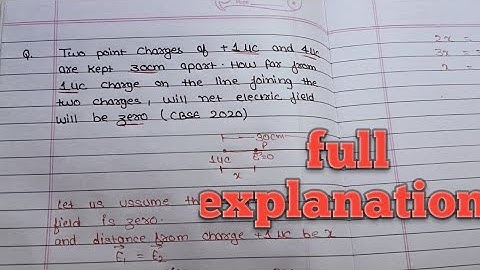 Q. Two point charges of +1μC and 4μC
are kept 30cm apart. How far from
1μC charge on the line joining the
two charges, will net electric field
will be zero (CBSE 2020)
2x =
3x =
x =
30cm
P
1μC E=0
x
full
explanation
Let us assume
field is zero.
and distance from charge +1μC be x
E₁ = E₂